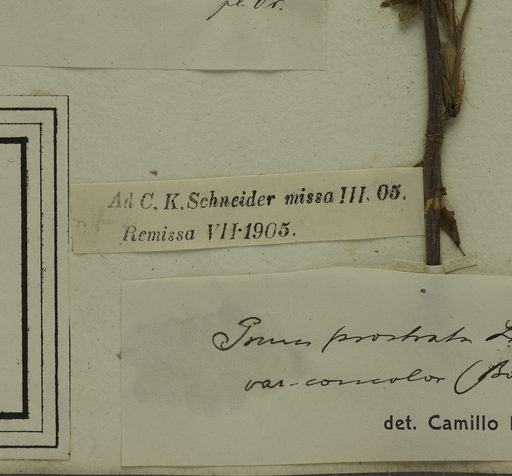 pl. Or.
Ad C. K. Schneider missa III. 05.
Remissa VII·1905.
Prunus prostrata
var. concolor (Bo
det. Camillo